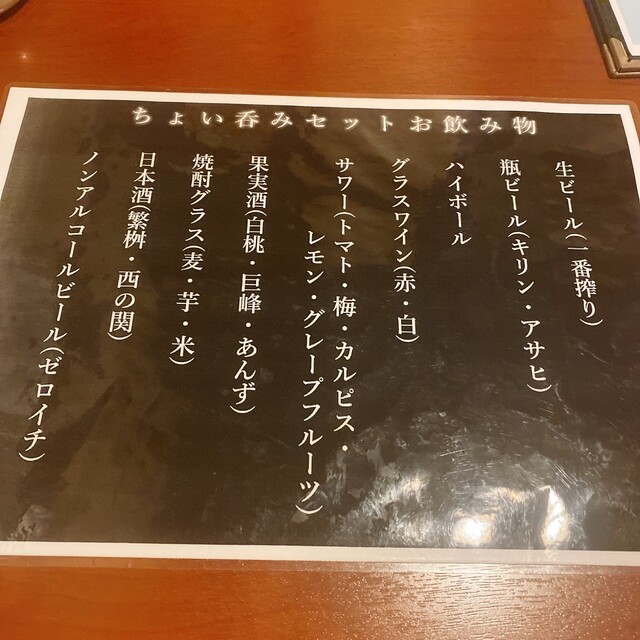 ちょい呑みセットお飲み物
生ビール(一番搾り)
瓶ビール(キリン・アサヒ)
ハイボール
グラスワイン(赤・白)
サワー(トマト・梅・カルピス・
レモン・グレープフルーツ)
果実酒(白桃・巨峰・あんず)
焼酎グラス(麦・芋・米)
日本酒(繁桝・西の関)
ノンアルコールビール(ゼロイチ)